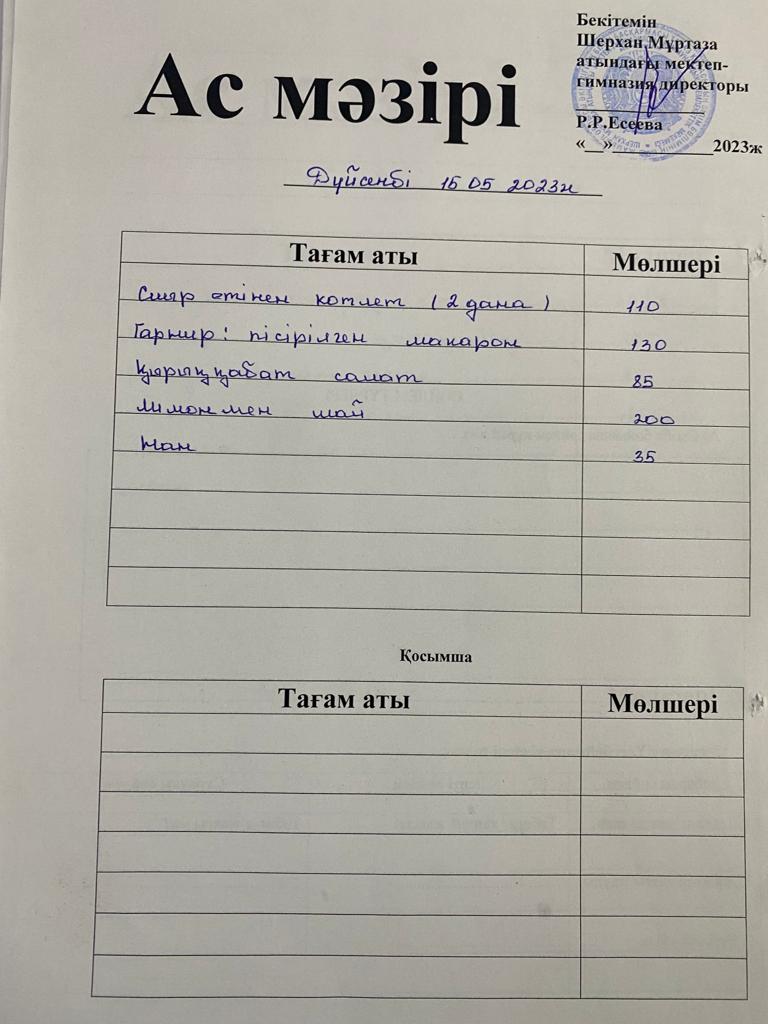 Бекітемін
Шерхан Мұртаза
атындағы мектеп-
гимназия директоры
Р.Р.Есеева
«__»____________2023ж
Ас мәзірі
Дүйсенбі 15 05 2023ж
Тағам аты Мөлшері
Сиыр етінен котлет (2 дана) 110
Гарнир: пісірілген макарон 130
Қырыққабат салат 85
Лимонмен шай 200
Нан 35
Қосымша
Тағам аты Мөлшері